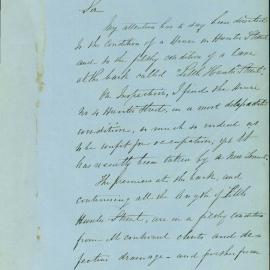 Sir
My attention has to day been directed
to the condition of a House in Hunter Street
and to the filthy condition of a lane
at the back called "Little Hunter Street".
On Inspection, I find the House
No 4 Hunter Street, in a most dilapidated
condition, so much so indeed as
to be unfit for occupation, yet it
has recently been taken by a new Tenant.
The premises at the back, and
continuing all the length of Little
Hunter Street, are in a filthy condition
from ill constructed closets and de-
fective drainage - and further from